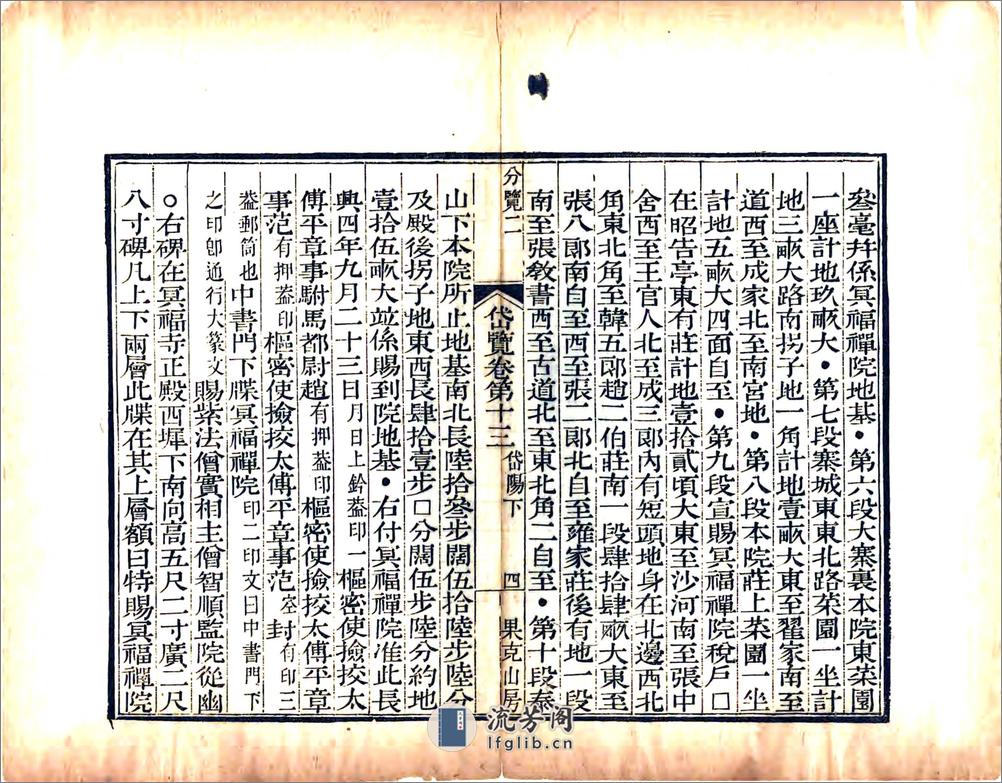 叄毫幷係冥福禪院地基•第六段大寨裏本院東菜園
一座計地玖畝大•第七段寨城東東北路菜園一坐計
地三畝大路南拐子地一角計地壹畝大東至翟家南至
道西至成家北至南宮地•第八段本院莊上菜園一坐
計地五畝大四面自至•第九段宣賜冥福禪院稅戶□
在昭告亭東有莊計地壹拾貳頃大東至沙河南至張中
舍西至王官人北至成三郎內有短頭地身在北邊西北
角東北角至韓五郎趙二伯莊南一段肆拾肆畝大東至
張八郎南自至西至張二郎北自至雍家莊後有地一段
南至張教書西至古道北至東北角二自至•第十段泰
分覽二
岱覽卷第十三 岱陽下 四 果克山房
山下本院所止地基南北長陸拾叄步闊伍拾陸步陸分
及殿後拐子地東西長肆拾壹步□分闊伍步陸分約地
壹拾伍畝大竝係賜到院地基•右付冥福禪院准此長
興四年九月二十三日月日上鈐葢印一樞密使撿挍太
傅平章事駙馬都尉趙有押葢印樞密使撿挍太傅平章
事范有押葢印樞密使撿挍太傅平章事范空封有印三
葢郵筒也中書門下牒冥福禪院印二印文曰中書門下
之印卽通行大篆文賜紫法僧實相主僧智順監院從幽
○右碑在冥福寺正殿西墀下南向高五尺二寸廣二尺
八寸碑凡上下兩層此牒在其上層額曰特賜冥福禪院
流芳閣
lfglib.cn